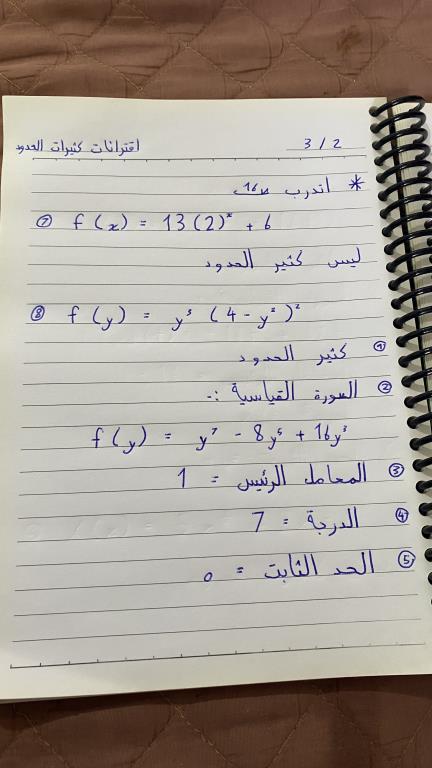 3 / 2 اقترانات كثيرات الحدود
* اتدرب ص16
⑦ f(x) = 13(2)ˣ + 6
ليس كثير الحدود
⑧ f(y) = y³ (4 - y²)²
① كثير الحدود
② الصورة القياسية :-
f(y) = y⁷ - 8y⁵ + 16y³
③ المعامل الرئيس = 1
④ الدرجة = 7
⑤ الحد الثابت = 0